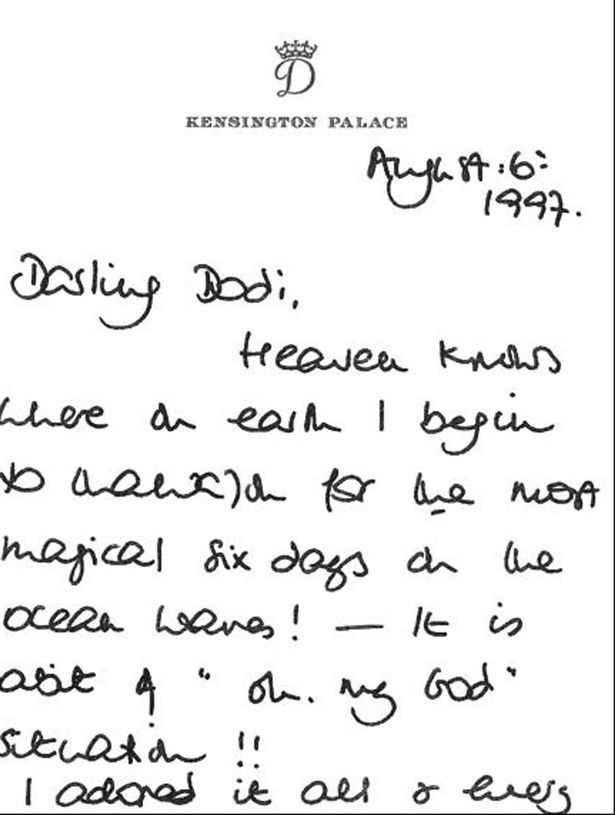 D
KENSINGTON PALACE
August : 6:
1997.
Darling Dodi,
Heaven knows
where on earth I begin
to thank you for the most
magical six days on the
ocean waves! — It is
abit of "oh. my God"
situation !!
I adored it all & every